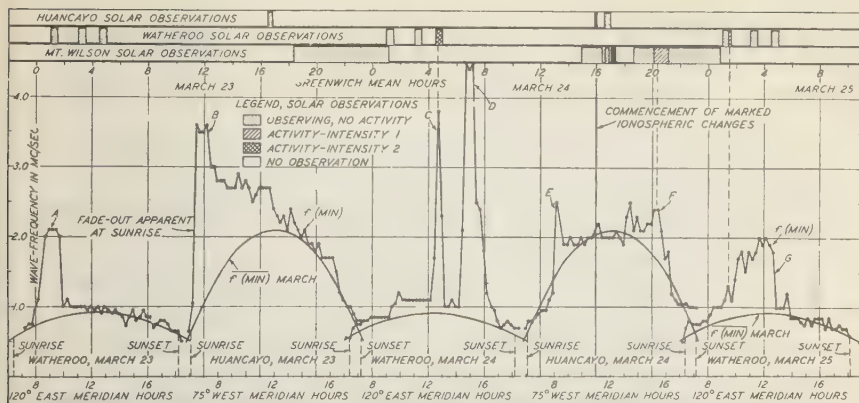 HUANCAYO SOLAR OBSERVATIONS
WATHEROO SOLAR OBSERVATIONS
MT. WILSON SOLAR OBSERVATIONS
0 4 8 12 16 20 0 4 8 12 16 20 0 4 8
MARCH 23 GREENWICH MEAN HOURS MARCH 24 MARCH 25
LEGEND, SOLAR OBSERVATIONS
OBSERVING, NO ACTIVITY
ACTIVITY-INTENSITY 1
ACTIVITY-INTENSITY 2
NO OBSERVATION
COMMENCEMENT OF MARKED
IONOSPHERIC CHANGES
WAVE-FREQUENCY IN MC/SEC
4.0
3.0
2.0
1.0
A
B
C
D
E
F
G
FADE-OUT APPARENT
AT SUNRISE
f (MIN)
f (MIN) MARCH
f (MIN)
f (MIN) MARCH
SUNRISE SUNSET SUNRISE SUNSET SUNRISE SUNSET SUNRISE SUNSET SUNRISE SUNSET
WATHEROO, MARCH 23 HUANCAYO, MARCH 23 WATHEROO, MARCH 24 HUANCAYO, MARCH 24 WATHEROO, MARCH 25
8 12 16 8 12 16 8 12 16 8 12 16 8 12 16
120° EAST MERIDIAN HOURS 75° WEST MERIDIAN HOURS 120° EAST MERIDIAN HOURS 75° WEST MERIDIAN HOURS 120° EAST MERIDIAN HOURS